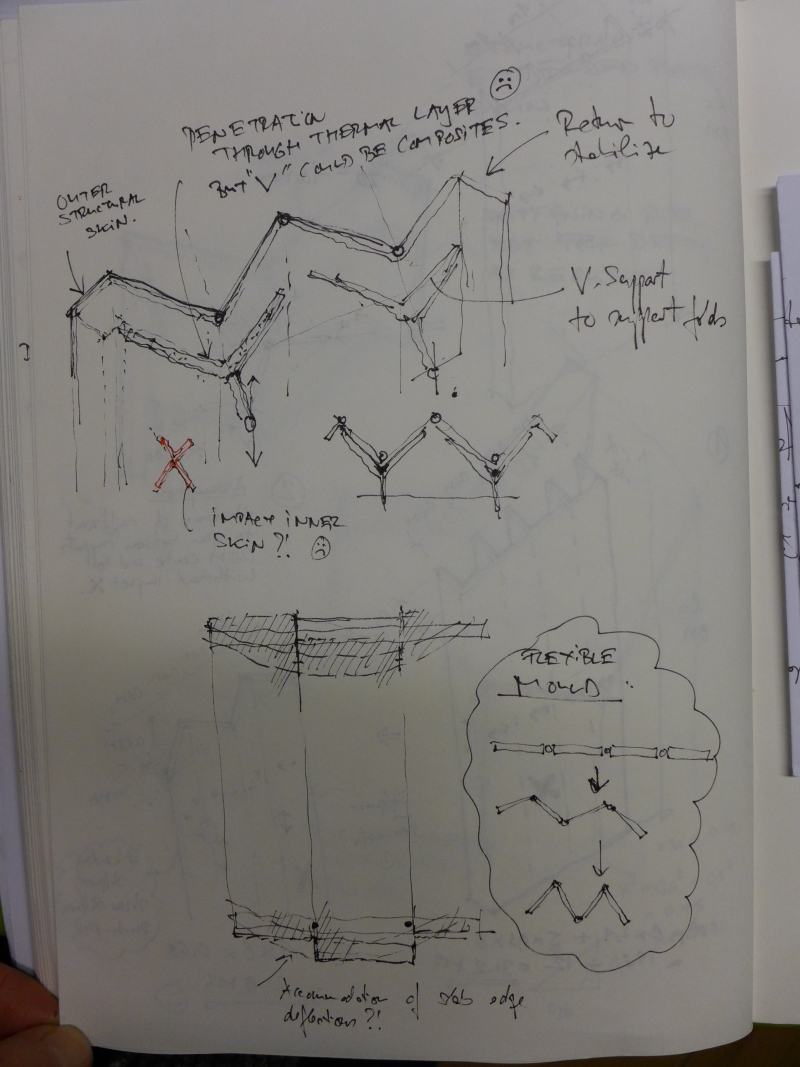 PENETRATION
THROUGH THERMAL LAYER
BUT "V" COULD BE COMPOSITES.
Return to
stabilize
OUTER
STRUCTURAL
SKIN.
V. Support
to support folds
IMPACT INNER
SKIN?!
FLEXIBLE
MOULD :
Accommodation of slab edge
deflection?!